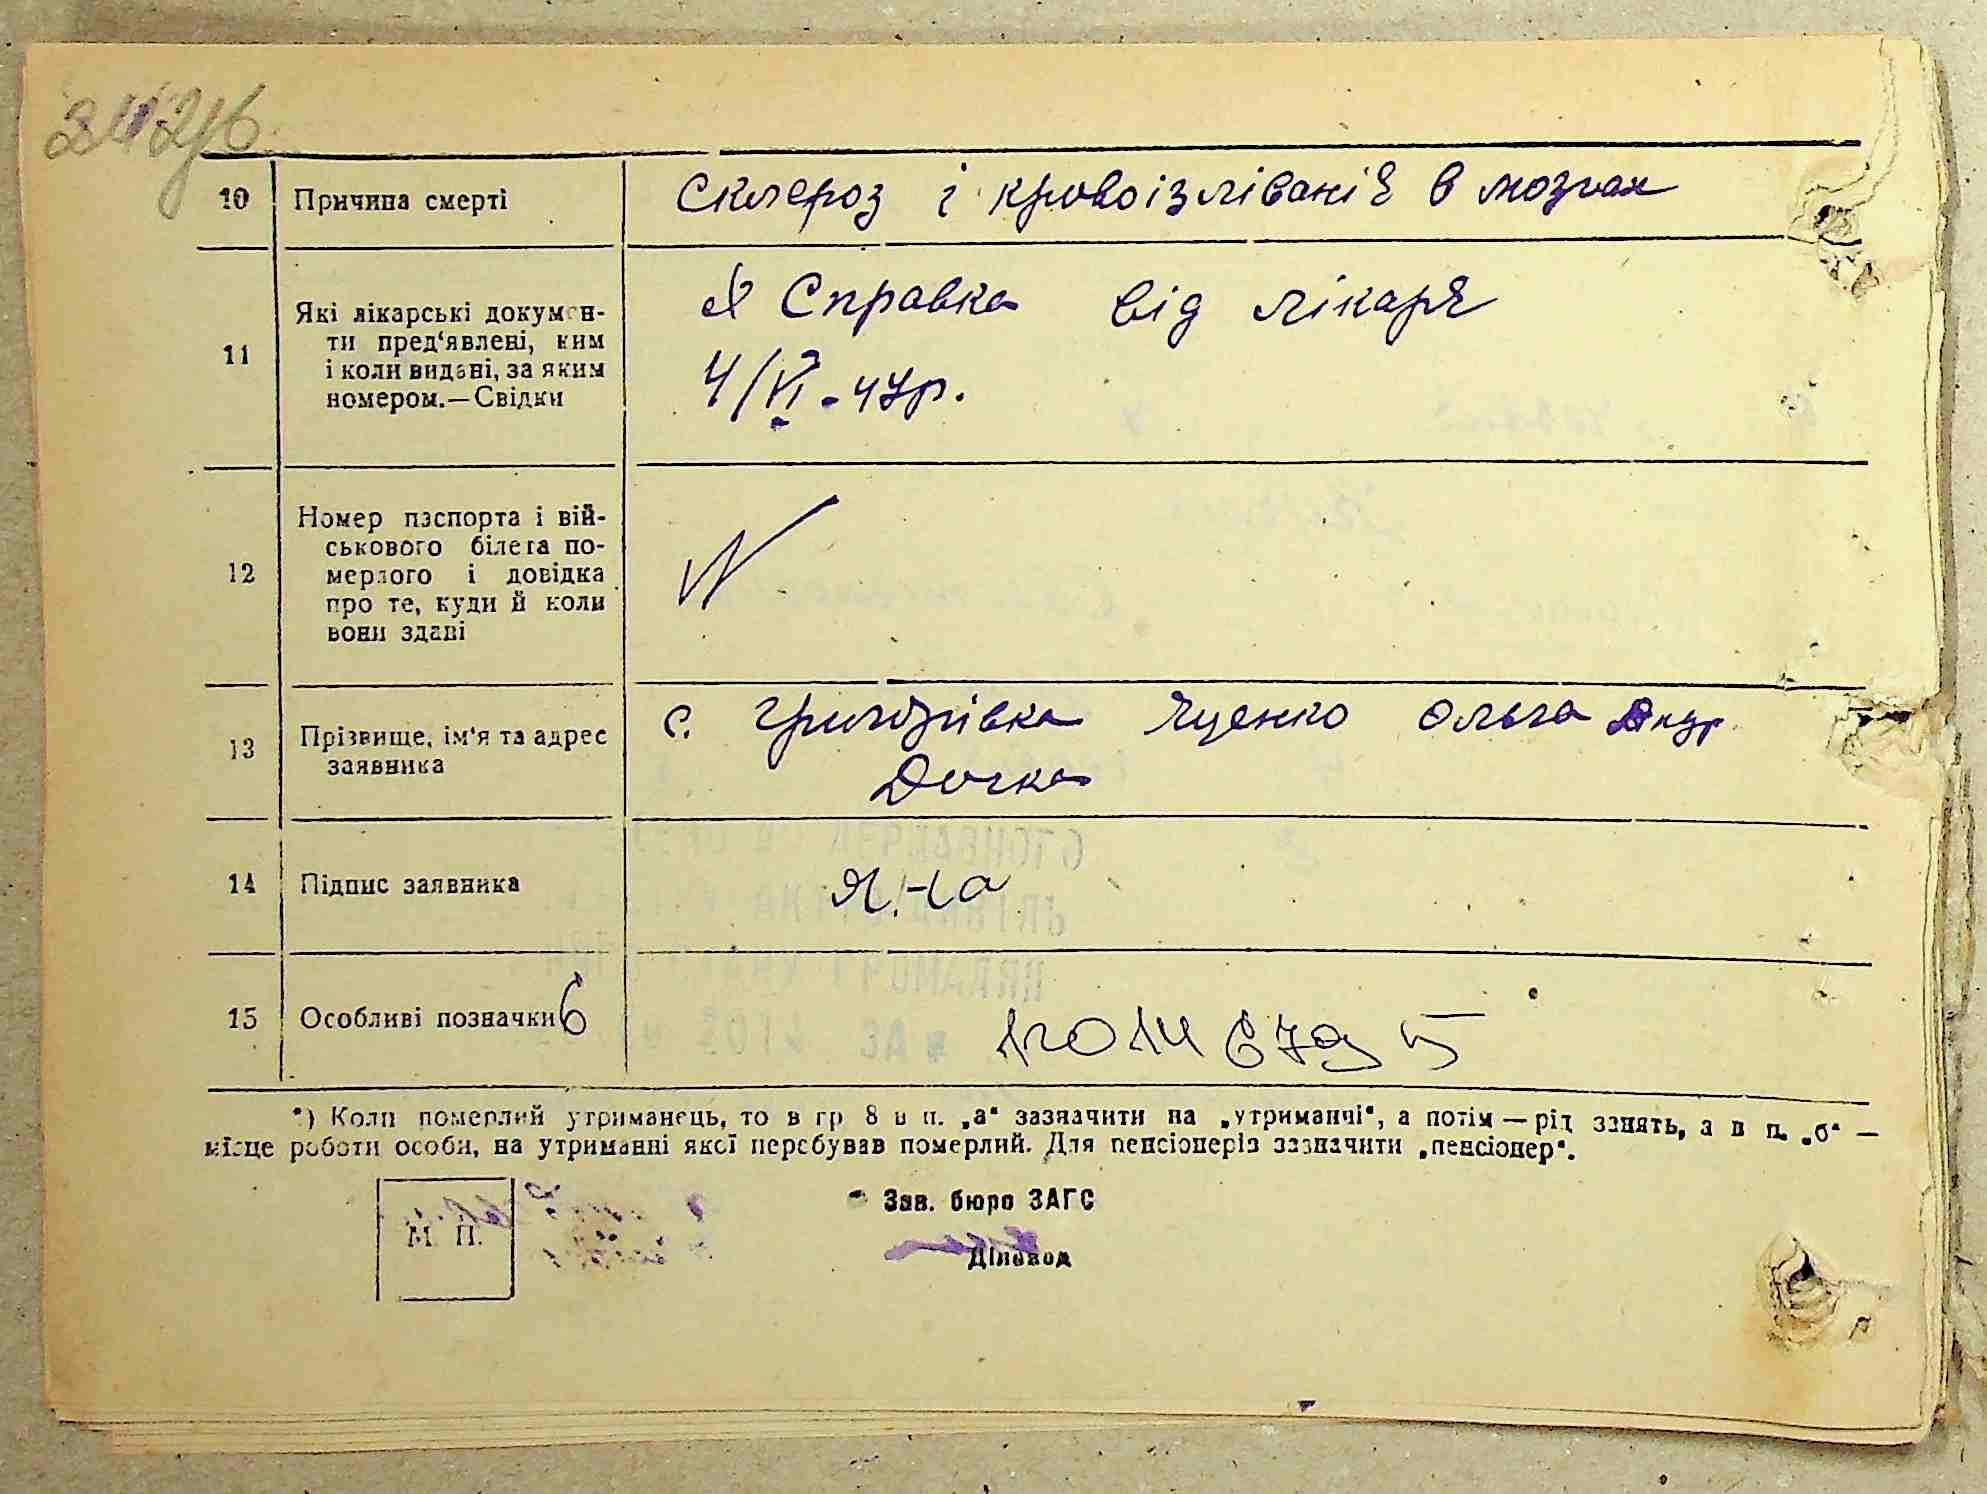 10 Причина смерті Склероз і кровоізліваніє в мозгах
11 Які лікарські докумен-
ти пред‘явлені, ким
і коли видані, за яким
номером.—Свідки
Справка від лікаря
4/VI-47р.
12 Номер паспорта і вій-
ськового білета по-
мерлого і довідка
про те, куди й коли
вони здані
13 Прізвище, ім‘я та адрес
заявника
с. Григорівка Яценко Ольга Андр
Дочка
14 Підпис заявника
15 Особливі позначки 6
*) Коли померлий утриманець, то в гр 8 в п. „а“ зазначити на „утриманчі“, а потім — рід занять, а в п. „б“ —
місце роботи особи, на утриманні якої перебував померлий. Для пенсіонерів зазначити „пенсіонер“.
Зав. бюро ЗАГС
М. П.
Діловод